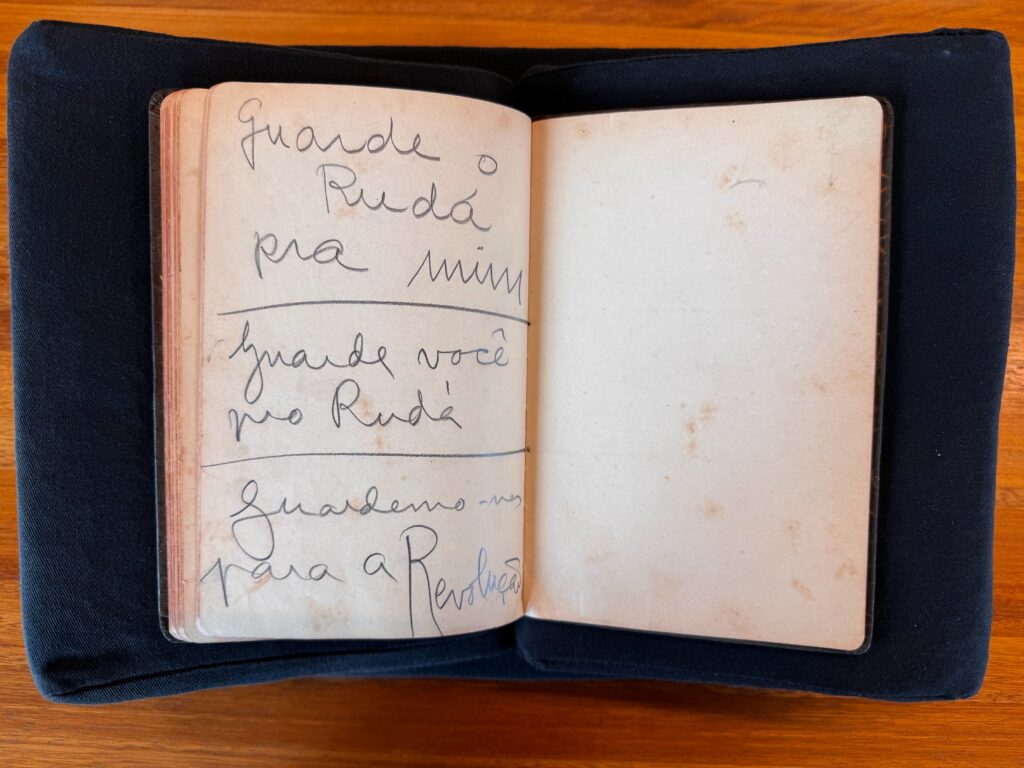 Guarde o
Rudá
pra mim
Guarde você
pro Rudá
Guardemo-nos
para a Revolução